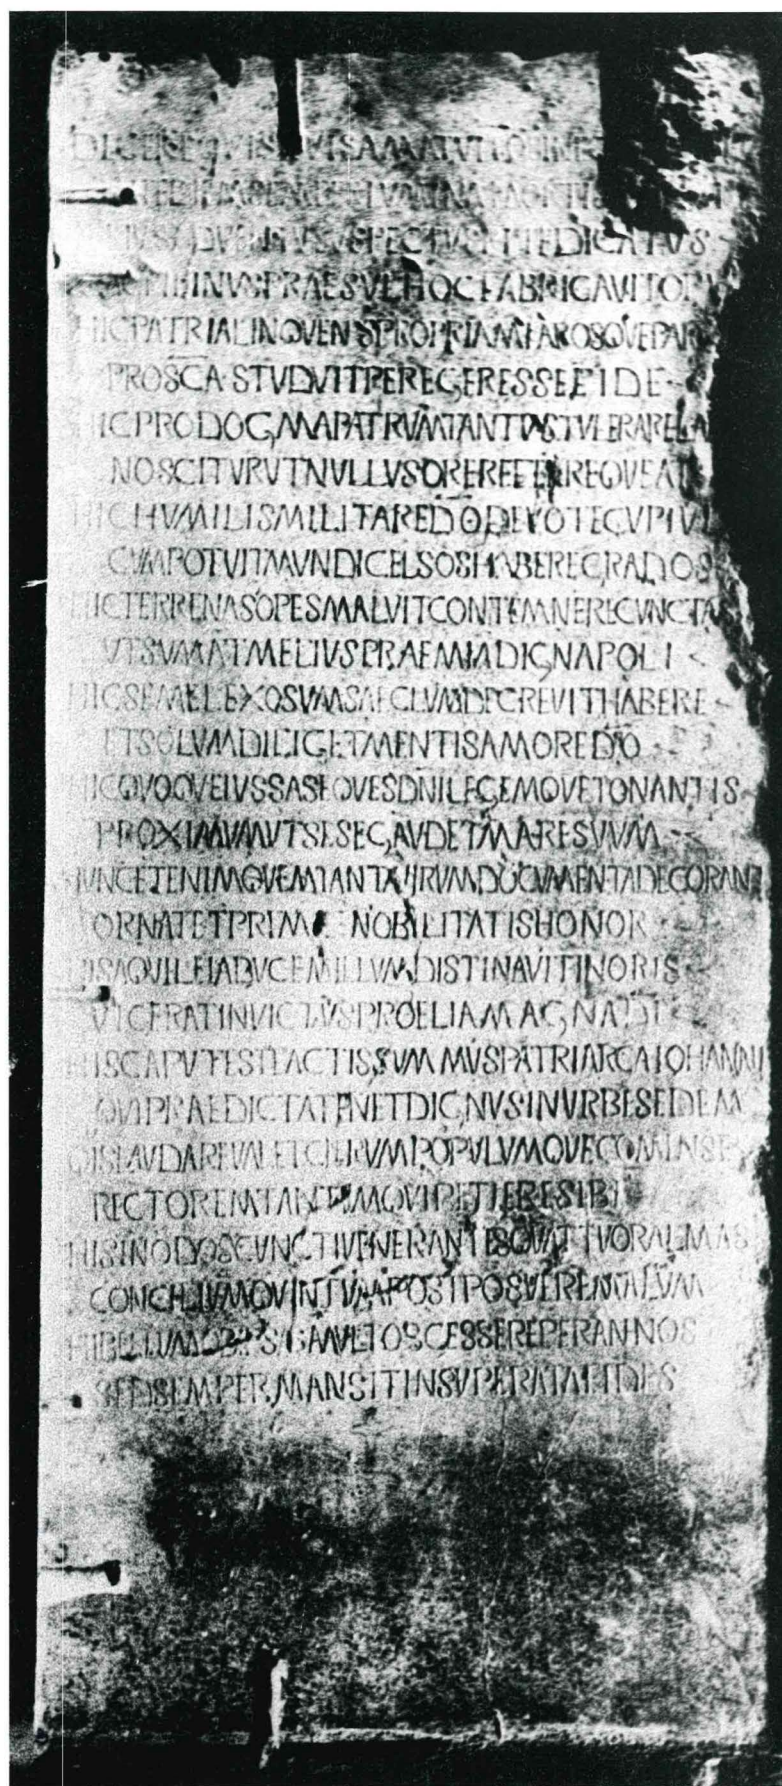 DEGERE QVISQVIS AMAT VLLO SINE
VIVS ADVENTVS VSPECTVS RITE DICATVS
PRAESVL HOC FABRICAVIT OPV
HIC PATRIA LINQVENS PROPRIAM KAROSQVE PAREN
PRO SCA STVDVIT PEREGER ESSE FIDE
HIC PRO DOGMA PATRVM TANTVS TVLERARE LA
NOSCITVR VT NVLLVS ORE REFERRE QVEAT
HIC HVMILIS MILITARE DO DEVOTE CVPIVI
CVM POTVIT MVNDI CELSOS HABERE GRADOS
HIC TERRENAS OPES MALVIT CONTEMNERE CVNCTAS
VT SVMAT MELIVS PRAEMIA DIGNA POLI
HIC SEMEL EXOSVM SAECLVM DECREVIT HABERE
ET SOLVM DILIGET MENTIS AMORE DM
HIC QVOQVE IVSSA SEQVES DNI LEGEMQVE TONANTIS
PROXIMVM VT SESE GAVDET AMARE SVVM
HVNC ETENIM QVEM TANTA VIRVM DOCVMENTA DECORANT
ORNAT ET PRIME NOBILITATIS HONOR
HIS AQVILEIA DVCEM ILLVM DISTINAVIT IN ORIS
VT GERAT INVICTVS PROELIA MAGNA DI
HIS CAPVT EST FACTIS SVMMVS PATRIARCA IOHANNIS
QVI PRAEDICTA TENET DIGNVS IN VRBE SEDEM
QIS LAVDARE VALET CLERVM POPVLVMQVE COMINSEM
RECTOREM TANTVM QVI PETIERE SIBI
HI SINODOS CVNCTI VENERANTES QVATTVOR ALMAS
CONCILIVM QVINTVM POSTPOSVERE MALVM
HI BELLVM OB IPSAS MVLTOS GESSERE PER ANNOS
SED SEMPER MANSIT INSVPERATA FIDES